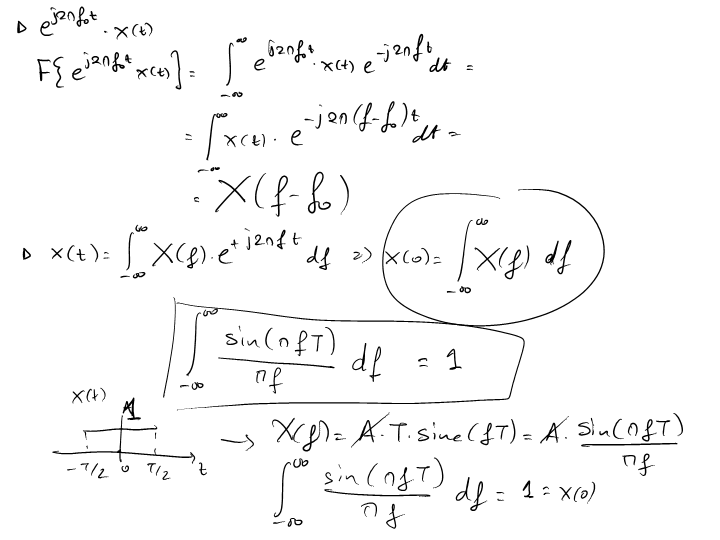 ▷ e^{j2πf₀t} · x(t)
F{e^{j2πf₀t} x(t)} = ∫_{-∞}^{∞} e^{j2πf₀t} · x(t) e^{-j2πft} dt =
= ∫_{-∞}^{∞} x(t) · e^{-j2π(f-f₀)t} dt =
= X(f-f₀)
▷ x(t) = ∫_{-∞}^{∞} X(f) · e^{+j2πft} df => x(0) = ∫_{-∞}^{∞} X(f) df
∫_{-∞}^{∞} sin(πfT)/πf df = 1
x(t)
1
-T/2 0 T/2 t
→ X(f) = A · T · sinc(fT) = A · sin(πfT)/πf
∫_{-∞}^{∞} sin(πfT)/πf df = 1 = x(0)